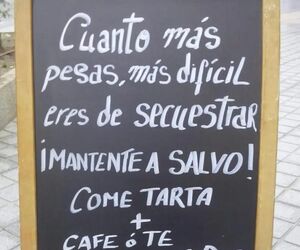 Cuanto más
pesas, más difícil
eres de secuestrar
¡MANTENTE A SALVO!
COME TARTA
+
CAFE ó TE